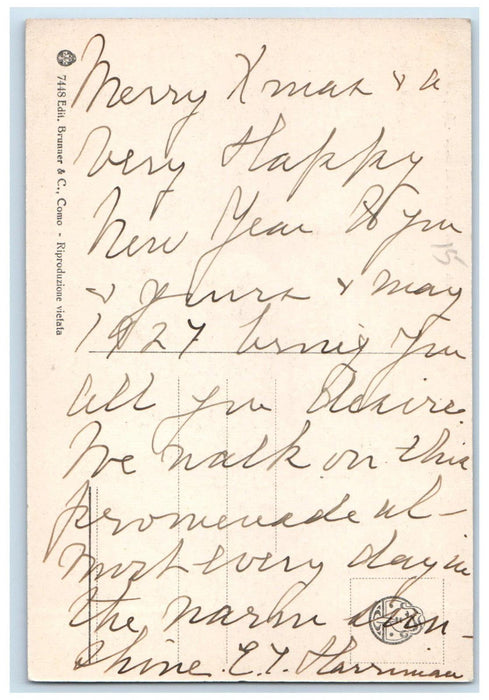 Merry Xmas & a
Very Happy
New Year to you
& yours & may
1927 bring you
all you desire.
We walk on this
promenade al-
most every day in
the warm sun-
shine. E. Y. Harriman
15
7448 Edit. Brunner & C., Como - Riproduzione vietata